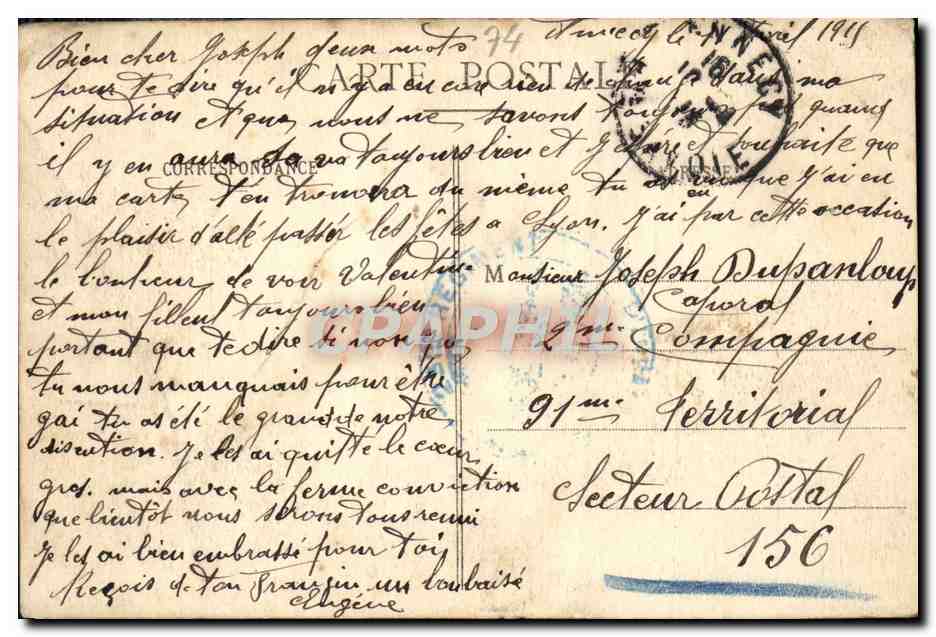 74
Annecy le avril 1915
CARTE POSTALE
Bien cher Joseph deux mots
pour te dire qu'il n'y a encore rien de changé dans ma
situation et que nous ne savons toujours pas quand
il y en aura. Sa va toujours bien et souhaite que
ma carte t'en trouvera du même tu que j'ai eu
le plaisir d'allé passér les fêtes a Lyon. J'ai par cette occasion
le bonheur de voir Valentine
et mon filleul toujours bien
portant que te dire si non que
tu nous manquais pour être
gai tu as été le grand de notre
discution. Je les ai quitté le cœur
gros. mais avec la ferme conviction
que bientôt nous serons tous reuni
Je les ai bien embrassé pour toi,
Reçois de ton frangin un bon baisé
Eugène
CORRESPONDANCE
ADRESSE
ANNECY
SAVOIE
Monsieur Joseph Dupanloup
Caporal
2me Compagnie
91me Territorial
Secteur Postal
156
CPAPHIL